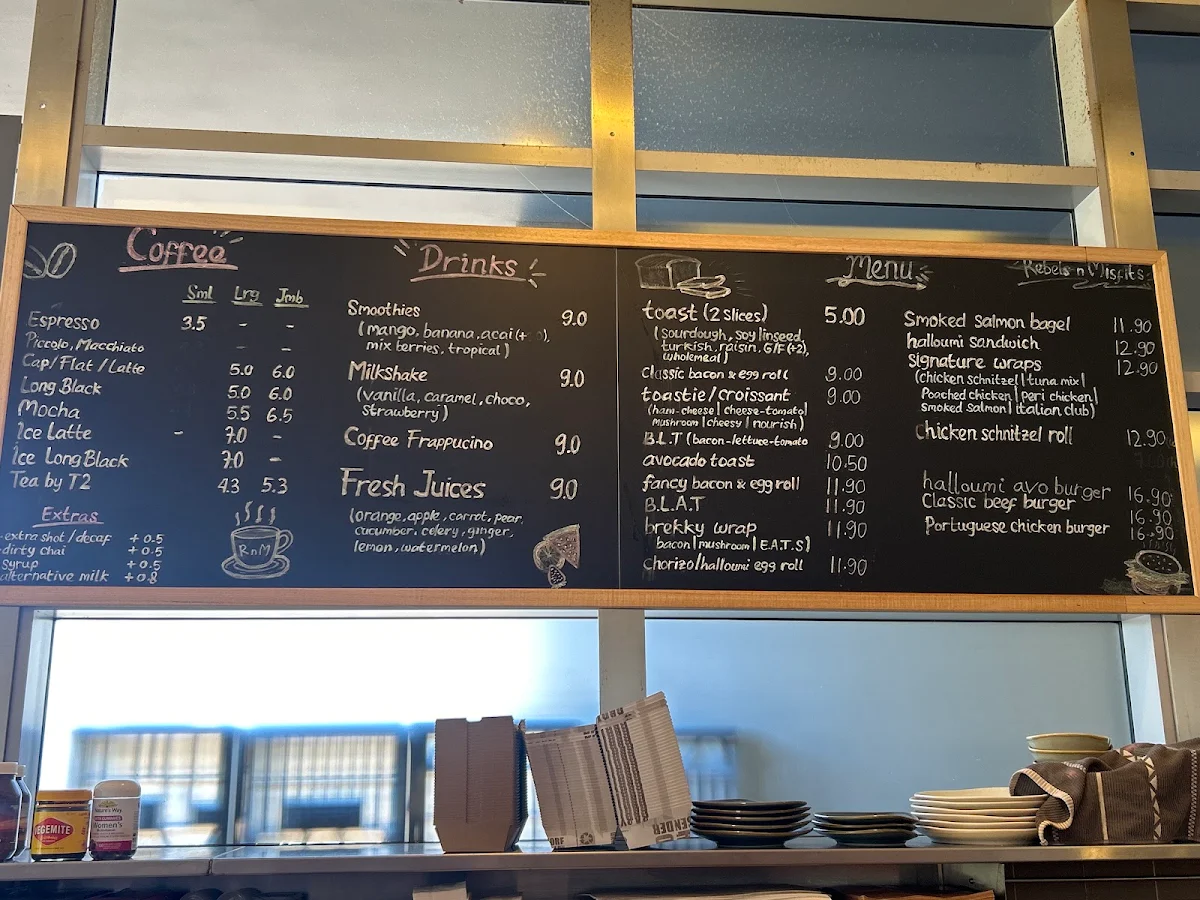 Coffee
Sml Lrg Jmb
Espresso 3.5 - -
Piccolo, Macchiato - -
Cap/Flat/Latte 5.0 6.0
Long Black 5.0 6.0
Mocha 5.5 6.5
Ice Latte - 7.0 -
Ice Long Black 7.0 -
Tea by T2 4.3 5.3
Extras
extra shot/decaf +0.5
dirty chai +0.5
syrup +0.5
alternative milk +0.8
RnM
Drinks
Smoothies 9.0
(mango, banana, acai(+ ),
mix berries, tropical)
Milkshake 9.0
(vanilla, caramel, choco,
strawberry)
Coffee Frappucino 9.0
Fresh Juices 9.0
(orange, apple, carrot, pear,
cucumber, celery, ginger,
lemon, watermelon)
Menu
toast (2 slices) 5.00
(sourdough, soy linseed,
turkish, raisin, G/F(+2),
wholemeal)
classic bacon & egg roll 9.00
toastie/croissant 9.00
(ham-cheese | cheese-tomato |
mushroom | cheesy | nourish)
B.L.T (bacon-lettuce-tomato 9.00
avocado toast 10.50
fancy bacon & egg roll 11.90
B.L.A.T 11.90
brekky wrap 11.90
(bacon | mushroom | E.A.T.S)
chorizo/halloumi egg roll 11.90
Rebels n Misfits
Smoked salmon bagel 11.90
halloumi sandwich 12.90
signature wraps 12.90
(chicken schnitzel | tuna mix |
Poached chicken | peri chicken |
smoked salmon | italian club)
chicken schnitzel roll 12.90
halloumi avo burger 16.90
Classic beef burger 16.90
Portuguese chicken burger 16.90
VEGEMITE
Nature's Way
Women's